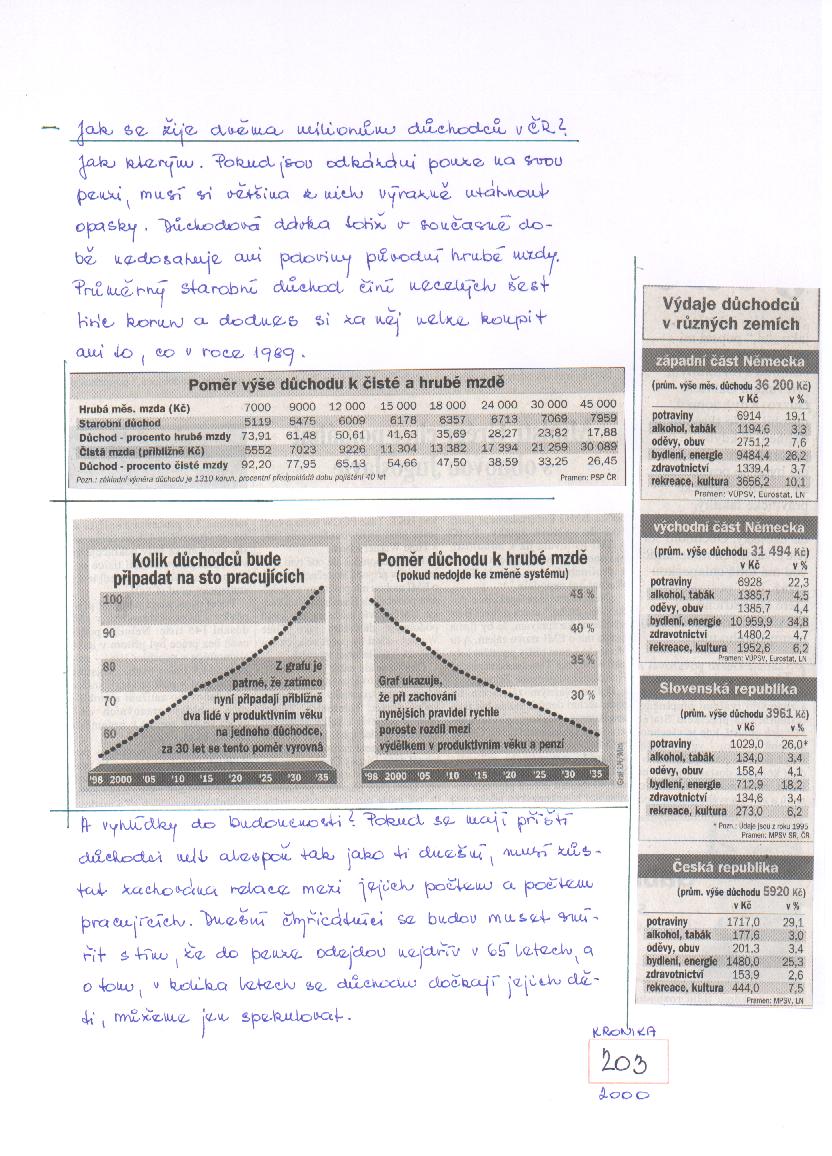 – Jak se žije dvěma milionům důchodců v ČR?
Jak kterým. Pokud jsou odkázáni pouze na svou
penzi, musí si většina z nich výrazně utáhnout
opasky. Důchodová dávka totiž v současné do-
bě nedosahuje ani poloviny původní hrubé mzdy.
Průměrný starobní důchod činí necelých šest
tisíc korun a dodnes si za něj nelze koupit
ani to, co v roce 1989.
Poměr výše důchodu k čisté a hrubé mzdě
Hrubá měs. mzda (Kč) 7000 9000 12 000 15 000 18 000 24 000 30 000 45 000
Starobní důchod 5119 5475 6009 6178 6357 6713 7069 7959
Důchod - procento hrubé mzdy 73,91 61,48 50,61 41,63 35,69 28,27 23,82 17,88
Čistá mzda (přibližně Kč) 5552 7023 9226 11 304 13 382 17 394 21 259 30 089
Důchod - procento čisté mzdy 92,20 77,95 65,13 54,66 47,50 38,59 33,25 26,45
Pozn.: základní výměra důchodu je 1310 korun, procentní předpokládá dobu pojištění 40 let Pramen: PSP ČR
Kolik důchodců bude
připadat na sto pracujících
100
90
80
70
60
Z grafu je
patrné, že zatímco
nyní připadají přibližně
dva lidé v produktivním věku
na jednoho důchodce,
za 30 let se tento poměr vyrovná
'98 2000 '05 '10 '15 '20 '25 '30 '35
Poměr důchodu k hrubé mzdě
(pokud nedojde ke změně systému)
45 %
40 %
35 %
30 %
Graf ukazuje,
že při zachování
nynějších pravidel rychle
poroste rozdíl mezi
výdělkem v produktivním věku a penzí
'98 2000 '05 '10 '15 '20 '25 '30 '35
A vyhlídky do budoucnosti? Pokud se mají příští
důchodci mít alespoň tak jako ti dnešní, musí zůs-
tat zachována relace mezi jejich počtem a počtem
pracujících. Dnešní čtyřicátníci se budou muset smí-
řit s tím, že do penze odejdou nejdřív v 65 letech, a
o tom, v kolika letech se důchodu dočkají jejich dě-
ti, můžeme jen spekulovat.
Výdaje důchodců
v různých zemích
západní část Německa
(prům. výše měs. důchodu 36 200 Kč)
v Kč v %
potraviny 6914 19,1
alkohol, tabák 1194,6 3,3
oděvy, obuv 2751,2 7,6
bydlení, energie 9484,4 26,2
zdravotnictví 1339,4 3,7
rekreace, kultura 3656,2 10,1
Pramen: VÚPSV, Eurostat, LN
východní část Německa
(prům. výše důchodu 31 494 Kč)
v Kč v %
potraviny 6928 22,3
alkohol, tabák 1385,7 4,5
oděvy, obuv 1385,7 4,4
bydlení, energie 10 959,9 34,8
zdravotnictví 1480,2 4,7
rekreace, kultura 1952,6 6,2
Pramen: VÚPSV, Eurostat, LN
Slovenská republika
(prům. výše důchodu 3961 Kč)
v Kč v %
potraviny 1029,0 26,0*
alkohol, tabák 134,0 3,4
oděvy, obuv 158,4 4,1
bydlení, energie 712,9 18,2
zdravotnictví 134,6 3,4
rekreace, kultura 273,0 6,2
* Pozn.: Údaje jsou z roku 1995
Pramen: MPSV SR, ČR
Česká republika
(prům. výše důchodu 5920 Kč)
v Kč v %
potraviny 1717,0 29,1
alkohol, tabák 177,6 3,0
oděvy, obuv 201,3 3,4
bydlení, energie 1480,0 25,3
zdravotnictví 153,9 2,6
rekreace, kultura 444,0 7,5
Pramen: MPSV, LN
KRONIKA
203
2000